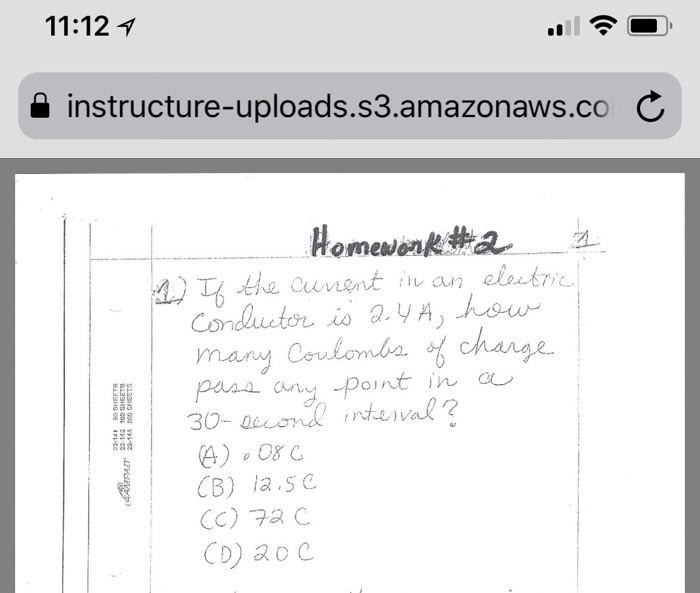 11:12
instructure-uploads.s3.amazonaws.co
Homework #2
1
1.) If the current in an electric
Conductor is 2.4 A, how
many Coulombs of charge
pass any point in a
30-second interval?
(A) .08 C
(B) 12.5 C
(C) 72 C
(D) 20 C
22-141 50 SHEETS
22-142 100 SHEETS
22-144 200 SHEETS